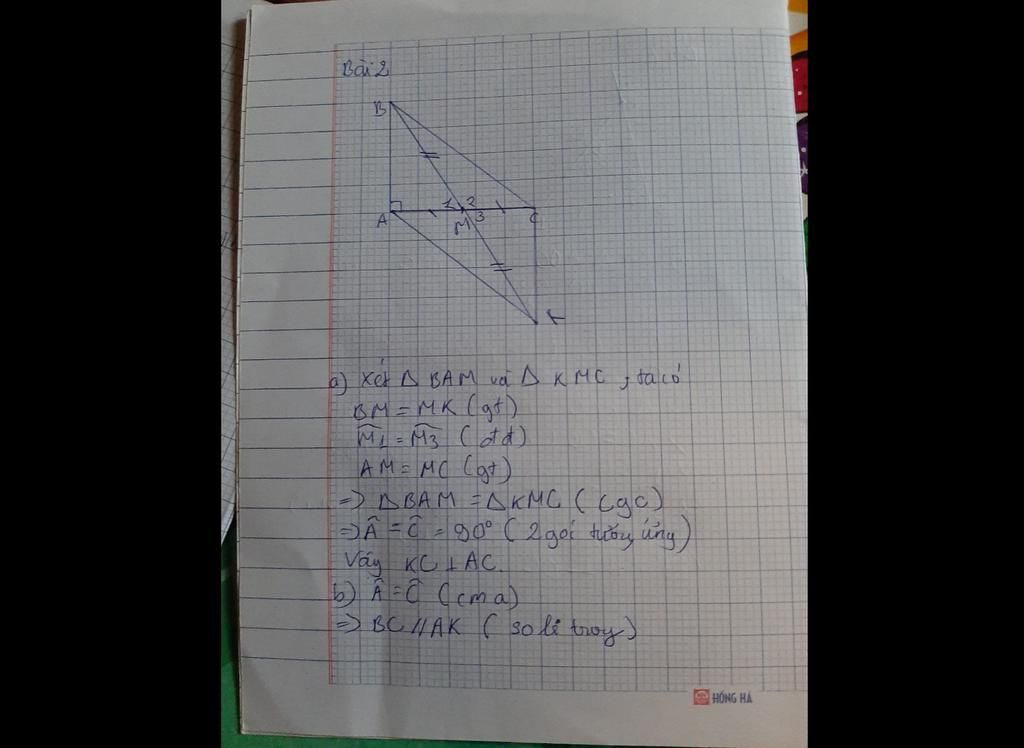 Bài 2
B
1 2
A M 3 C
K
a) Xét Δ BAM và Δ KMC, ta có
BM = MK (gt)
M̂1 = M̂3 (đđ)
AM = MC (gt)
=> ΔBAM = ΔKMC (cgc)
=> Â = Ĉ = 90° (2 góc tương ứng)
Vậy KC ⊥ AC.
b) Â = Ĉ (cm a)
=> BC // AK (so le trog)
HỒNG HÀ